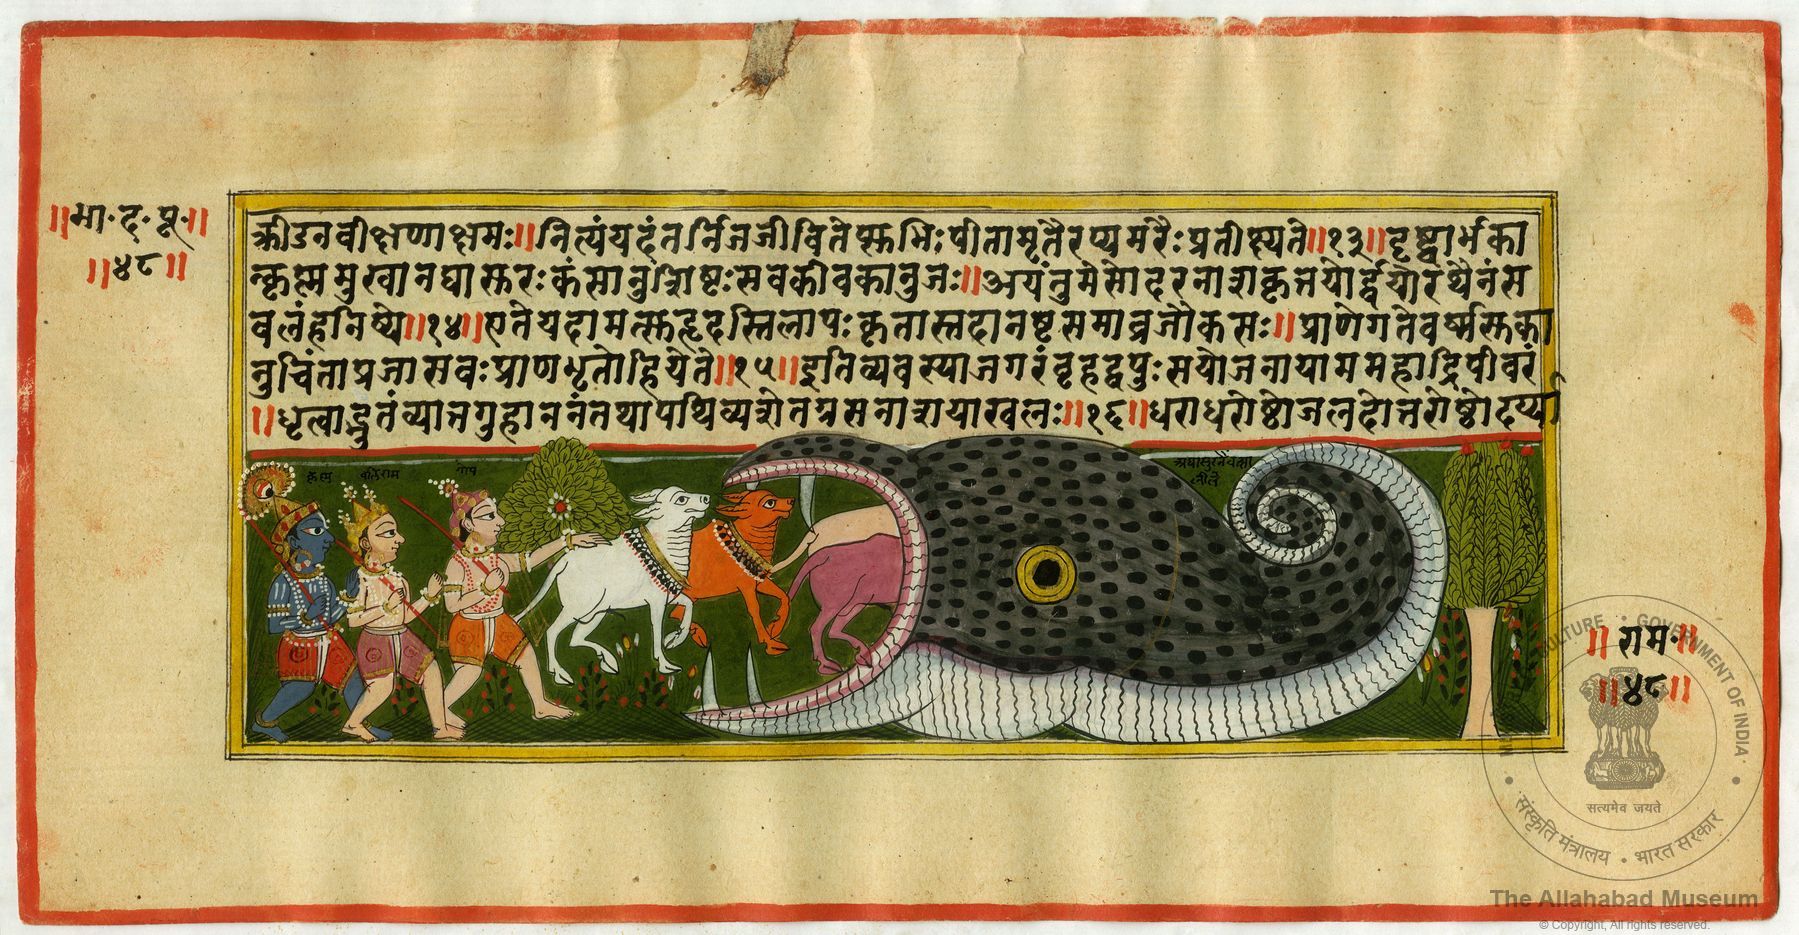 ॥भा॰द॰पू॰॥
॥४८॥
क्रीडनवीक्षणाक्षमः॥नित्यंयदंतर्निजजीवितेप्सुभिःपीतामृतैरप्यमरैःप्रतीक्ष्यते॥१३॥दृष्ट्वार्भका
न्कृष्णमुखानघासुरःकंसानुशिष्टःसबकीबकानुजः॥अयंतुमेसोदरनाशकृत्तयोर्द्वयोरथैनंस
बलंहनिष्ये॥१४॥एतेयदामत्सुहृदस्तिलापःकृतास्तदानष्टसमाव्रजौकसः॥प्राणेगतेवर्ष्मसुका
नुचिंताप्रजासवःप्राणभृतोहियेते॥१५॥इतिव्यवस्याजगरंबृहद्वपुःसयोजनायाममहाद्रिपीवरं
॥धृत्वाद्भुतंव्यात्तगुहाननंतथापथिव्यशेतग्रसनाशयाखलः॥१६॥धराधरोष्ठोजलदोत्तरोष्ठोदर्य्या
गोप
॥राम॰॥
॥४८॥
MINISTRY OF CULTURE • GOVERNMENT OF INDIA
सत्यमेव जयते
संस्कृति मंत्रालय • भारत सरकार
The Allahabad Museum
© Copyright, All rights reserved.